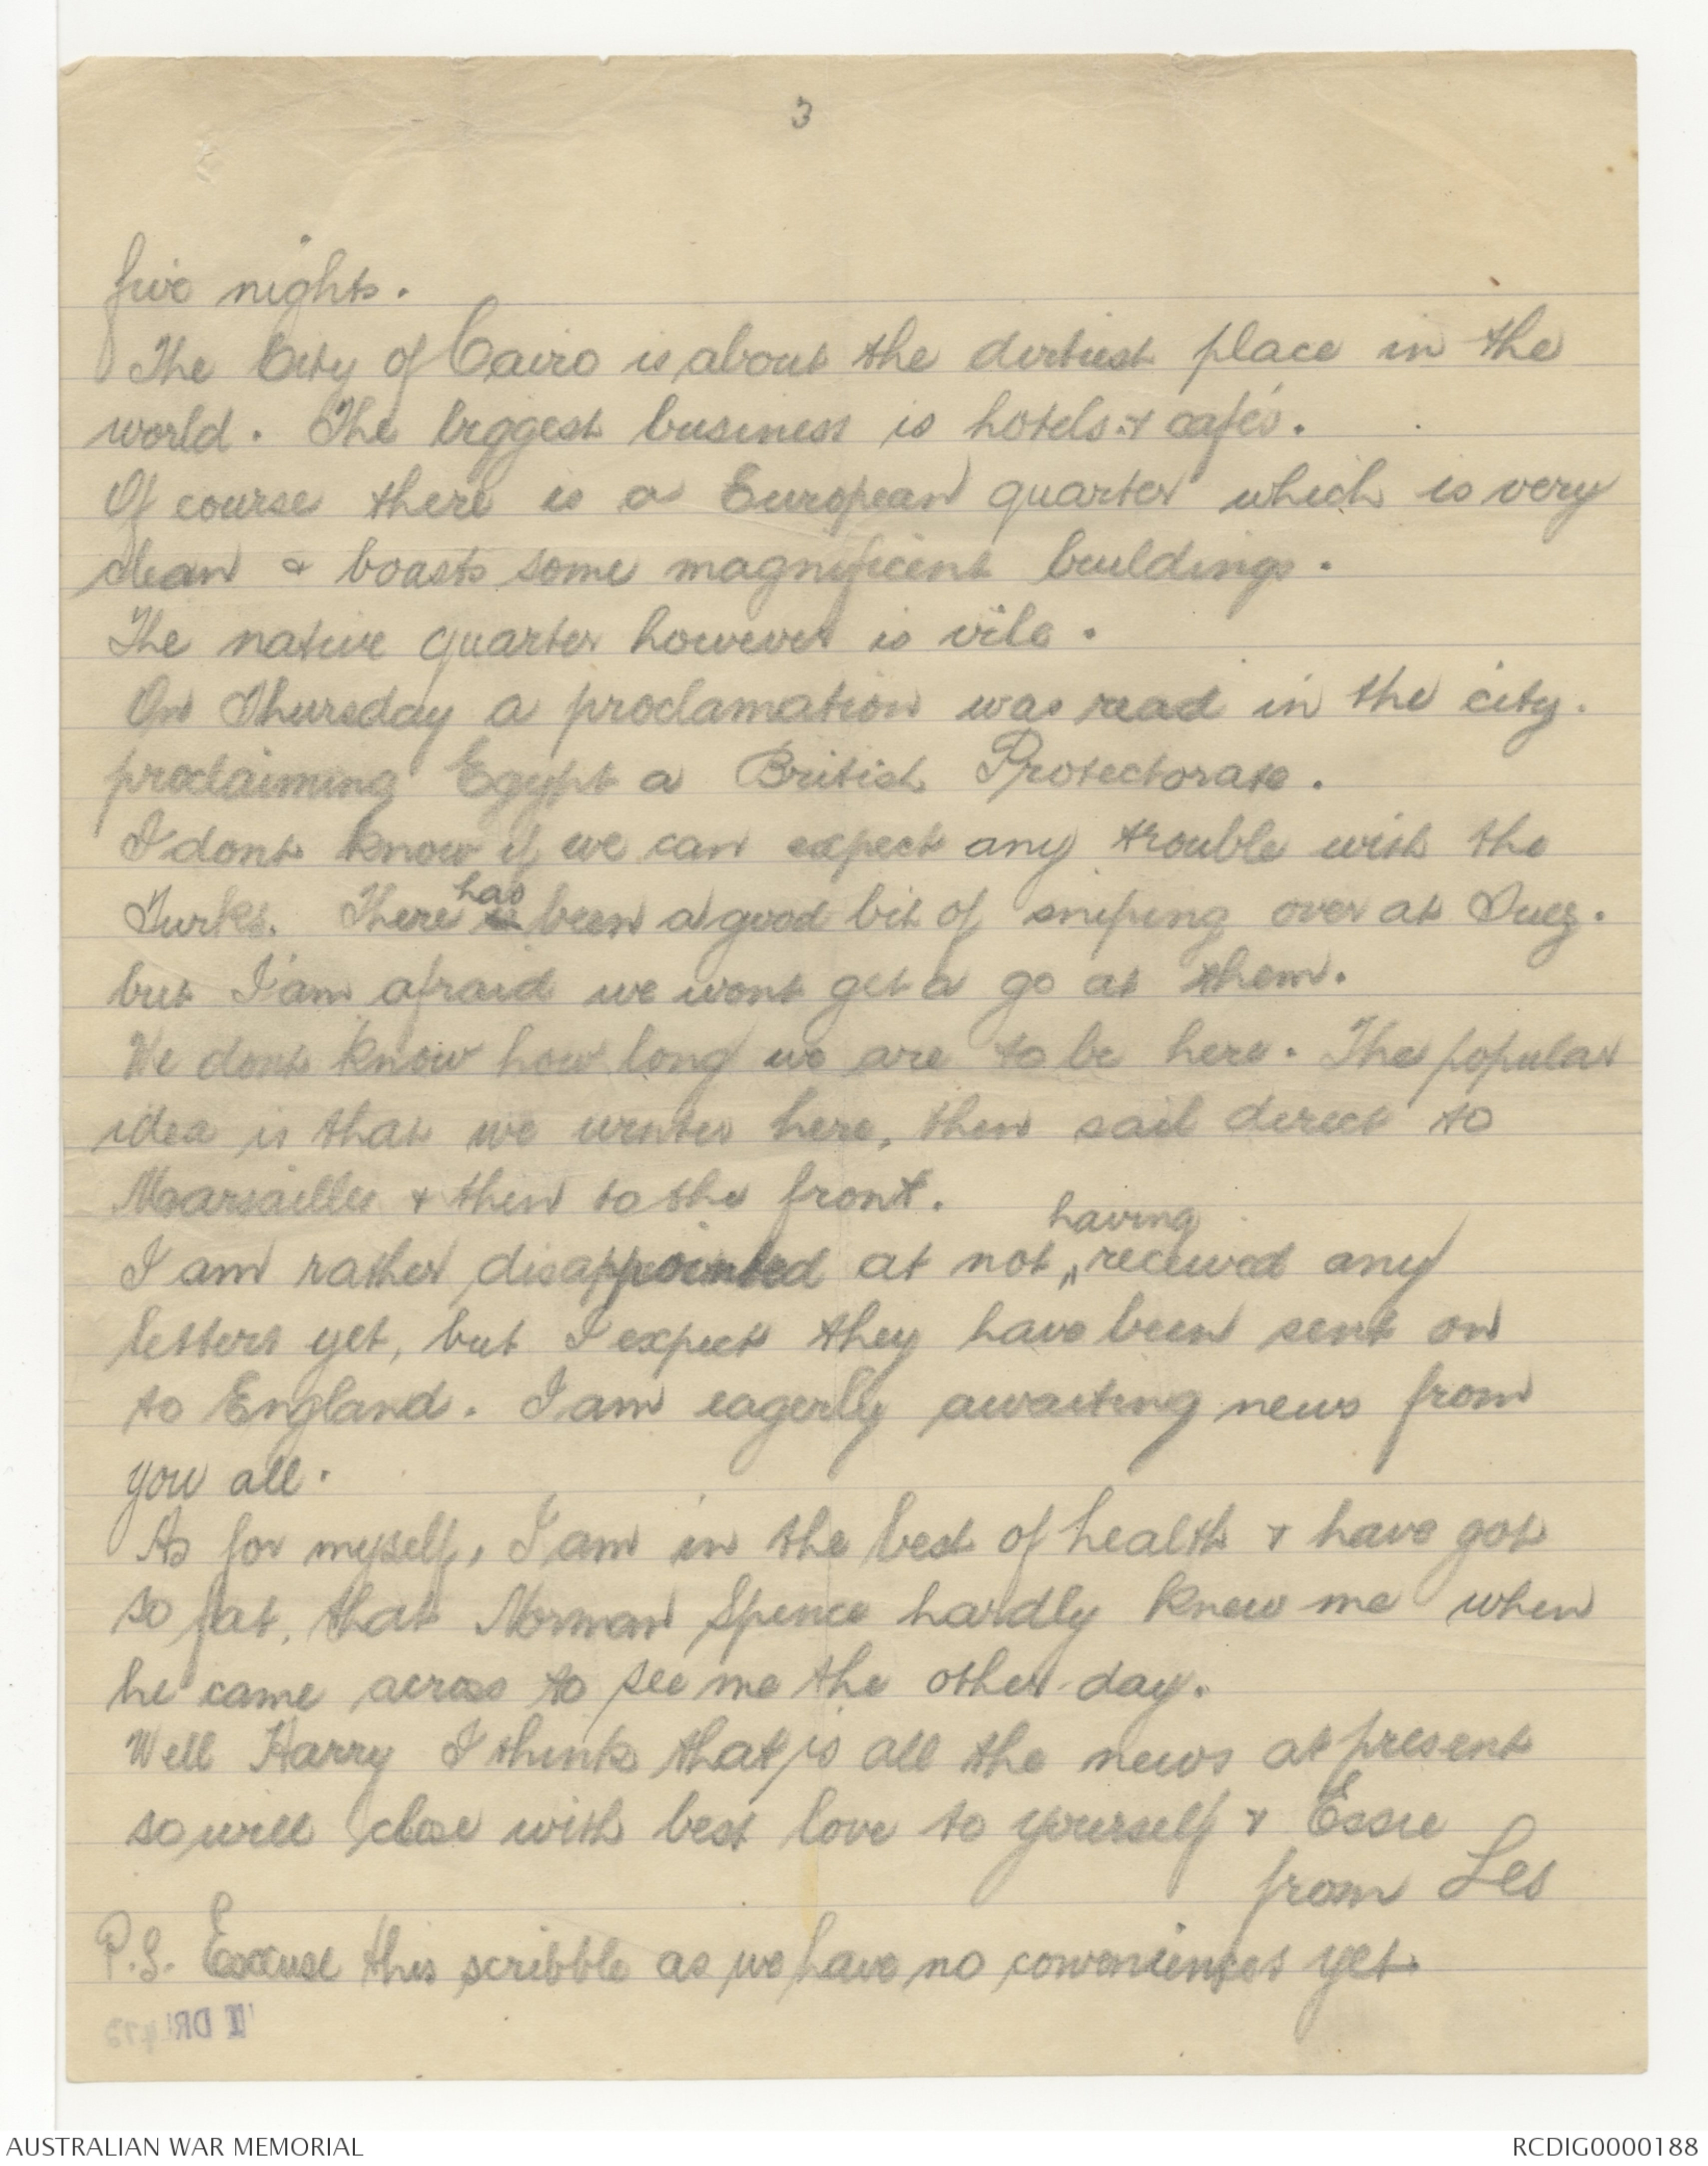 3
five nights.
The City of Cairo is about the dirtiest place in the
world. The biggest business is hotels & cafés.
Of course there is a European quarter which is very
clean & boasts some magnificent buildings.
The native quarter however is vile.
On Thursday a proclamation was read in the city.
proclaiming Egypt a British Protectorate.
I dont know if we can expect any trouble with the
Turks. There has been a good bit of sniping over at Suez.
but I'am afraid we wont get a go at them.
We dont know how long we are to be here. The popular
idea is that we winter here, then sail direct to
Marsailles & then to the front.
I am rather disappointed at not having received any
letters yet, but I expect they have been sent on
to England. I am eagerly awaiting news from
you all.
As for myself, I am in the best of health & have got
so fat, that Norman Spence hardly knew me when
he came across to see me the other day.
Well Harry I think that is all the news at present
so will close with best love to yourself & Essie
from Les
P.S. Excuse this scribble as we have no conveniences yet.
AUSTRALIAN WAR MEMORIAL
RCDIG0000188